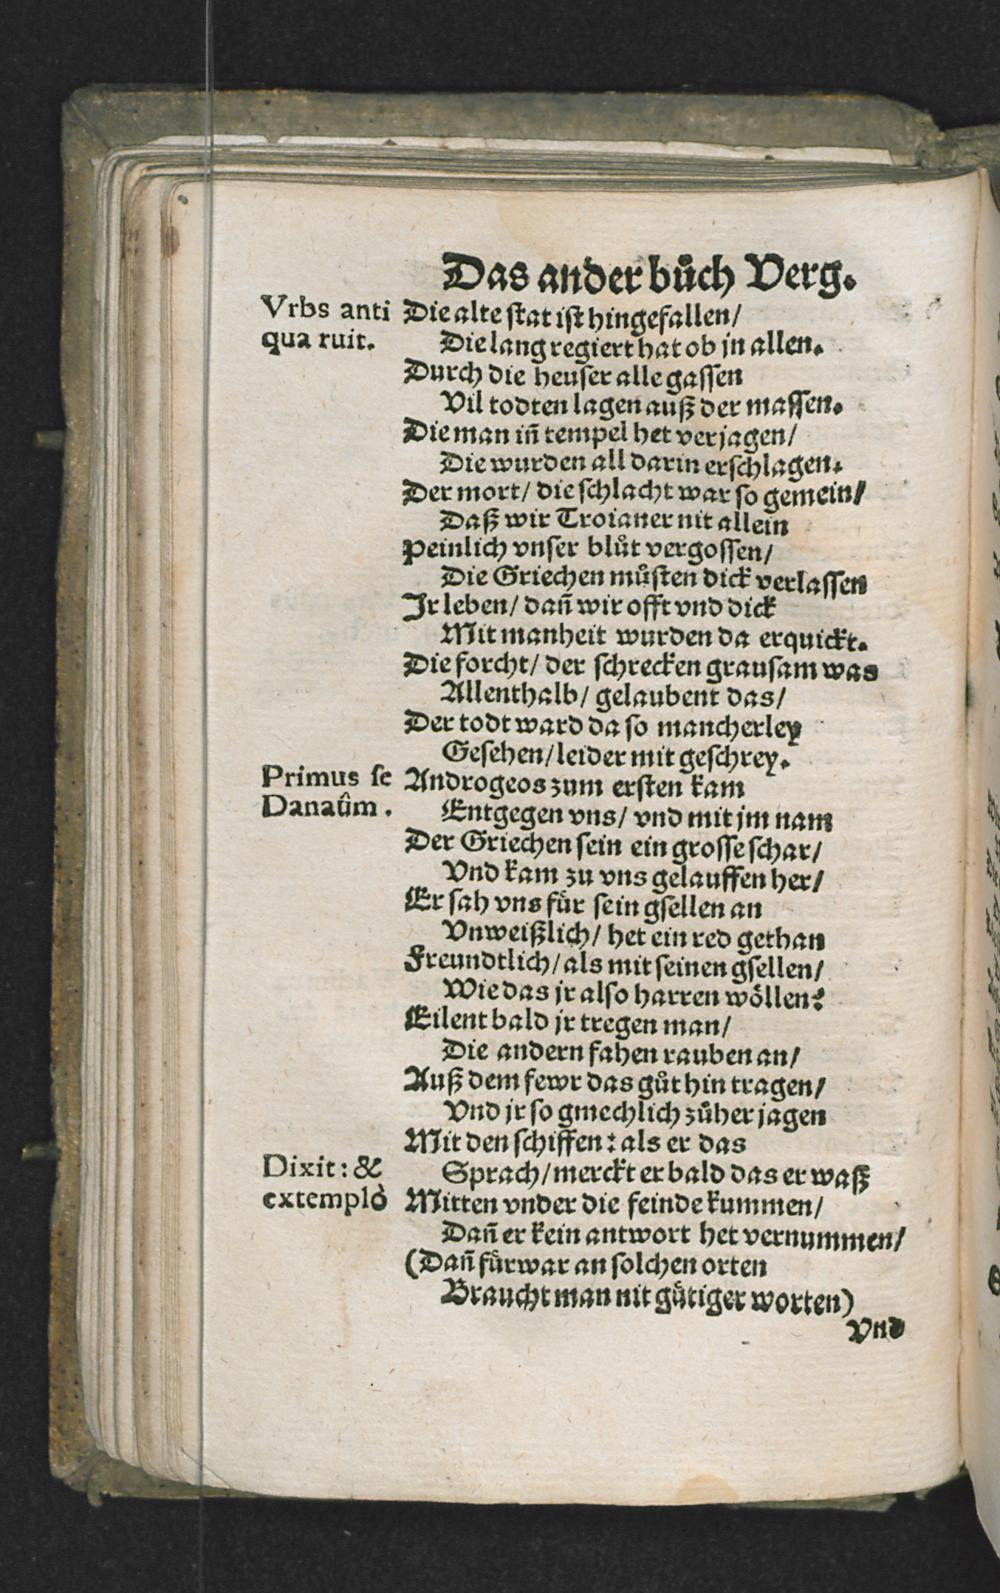 Das ander bůch Verg.
Vrbs anti
qua ruit.
Die alte stat ist hingefallen/
Die lang regiert hat ob jn allen.
Durch die heuser alle gassen
Vil todten lagen auß der massen.
Die man iñ tempel het verjagen/
Die wurden all darin erschlagen.
Der mort/ die schlacht war so gemein/
Daß wir Troianer nit allein
Peinlich vnser blůt vergossen/
Die Griechen můsten dick verlassen
Jr leben/ dañ wir offt vnd dick
Mit manheit wurden da erquickt.
Die forcht/ der schrecken grausam was
Allenthalb/ gelaubent das/
Der todt ward da so mancherley
Gesehen/ leider mit geschrey.
Primus se
Danaûm.
Androgeos zum ersten kam
Entgegen vns/ vnd mit jm nam
Der Griechen sein ein grosse schar/
Vnd kam zu vns gelauffen her/
Er sah vns fůr sein gsellen an
Vnweißlich/ het ein red gethan
Freundtlich/ als mit seinen gsellen/
Wie das jr also harren wöllen?
Eilent bald jr tregen man/
Die andern fahen rauben an/
Auß dem fewr das gůt hin tragen/
Vnd jr so gmechlich zůher jagen
Mit den schiffen: als er das
Dixit: &
extemplò
Sprach/ merckt er bald das er waß
Mitten vnder die feinde kummen/
Dañ er kein antwort het vernummen/
(Dañ fürwar an solchen orten
Braucht man nit gütiger worten)
Vnd